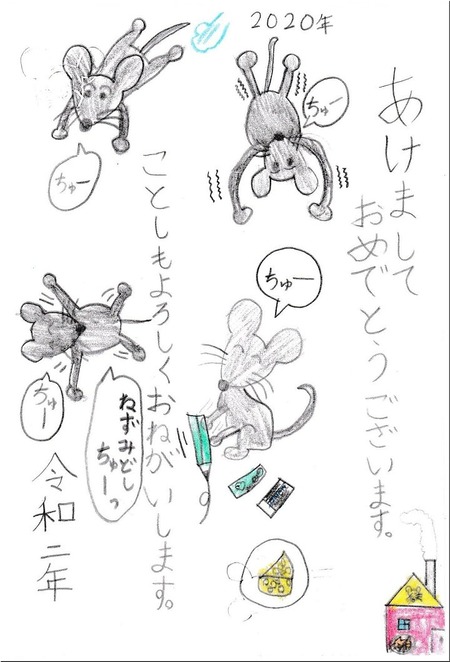 2020年
あけまして
おめでとうございます。
ちゅー
ちゅー
ことしもよろしくおねがいします。
ちゅー
ちゅー
ねずみどし
ちゅーっ
令和二年